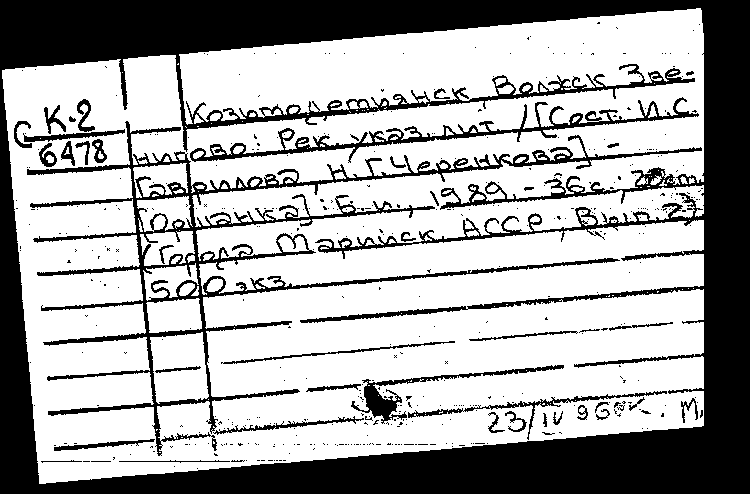 К-2
С
6478
Козьмодемьянск, Волжск, Зве-
нигово: Рек. указ. лит. / [Сост.: И.С.
Гаврилова, Н.Г. Черенкова]. -
[Оршанка]: Б.и., 1989. - 36 с.; 20 см.
(Города Марийск. АССР; Вып. 2)
500 экз.
23/IV 96 М.